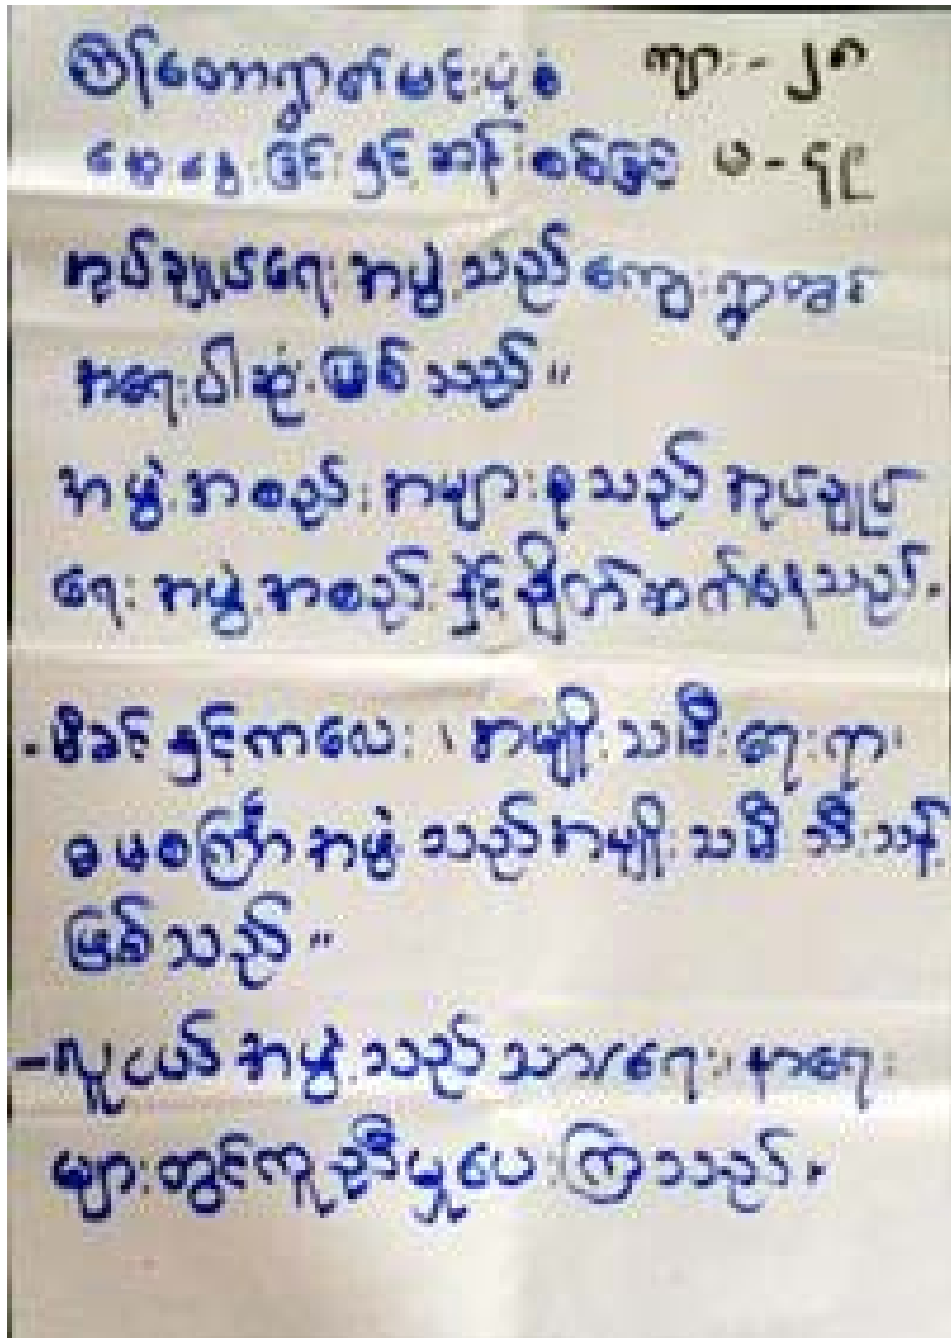 ကြံတောရွာဇယ်မင်းပုံစံ ကျား - ၂၈
ဆွေးနွေးခြင်းနှင့်ဆန်းစစ်ခြင်း မ - ၄၄
အုပ်ချုပ်ရေးအဖွဲ့သည်ကျေးရွာတွင်
အရေးပါဆုံးဖြစ်သည်။
အဖွဲ့အစည်းအများစုသည်အုပ်ချုပ်
ရေးအဖွဲ့အစည်းနှင့်ချိတ်ဆက်နေသည်။
- မိခင်နှင့်ကလေး၊ အမျိုးသမီးရေးရာ
ဓမ္မစကြာအဖွဲ့သည်အမျိုးသမီးသီးသန့်
ဖြစ်သည်။
- လူငယ်အဖွဲ့သည်သာရေး၊ နာရေး
များတွင်ကူညီမှုပေးကြသည်။